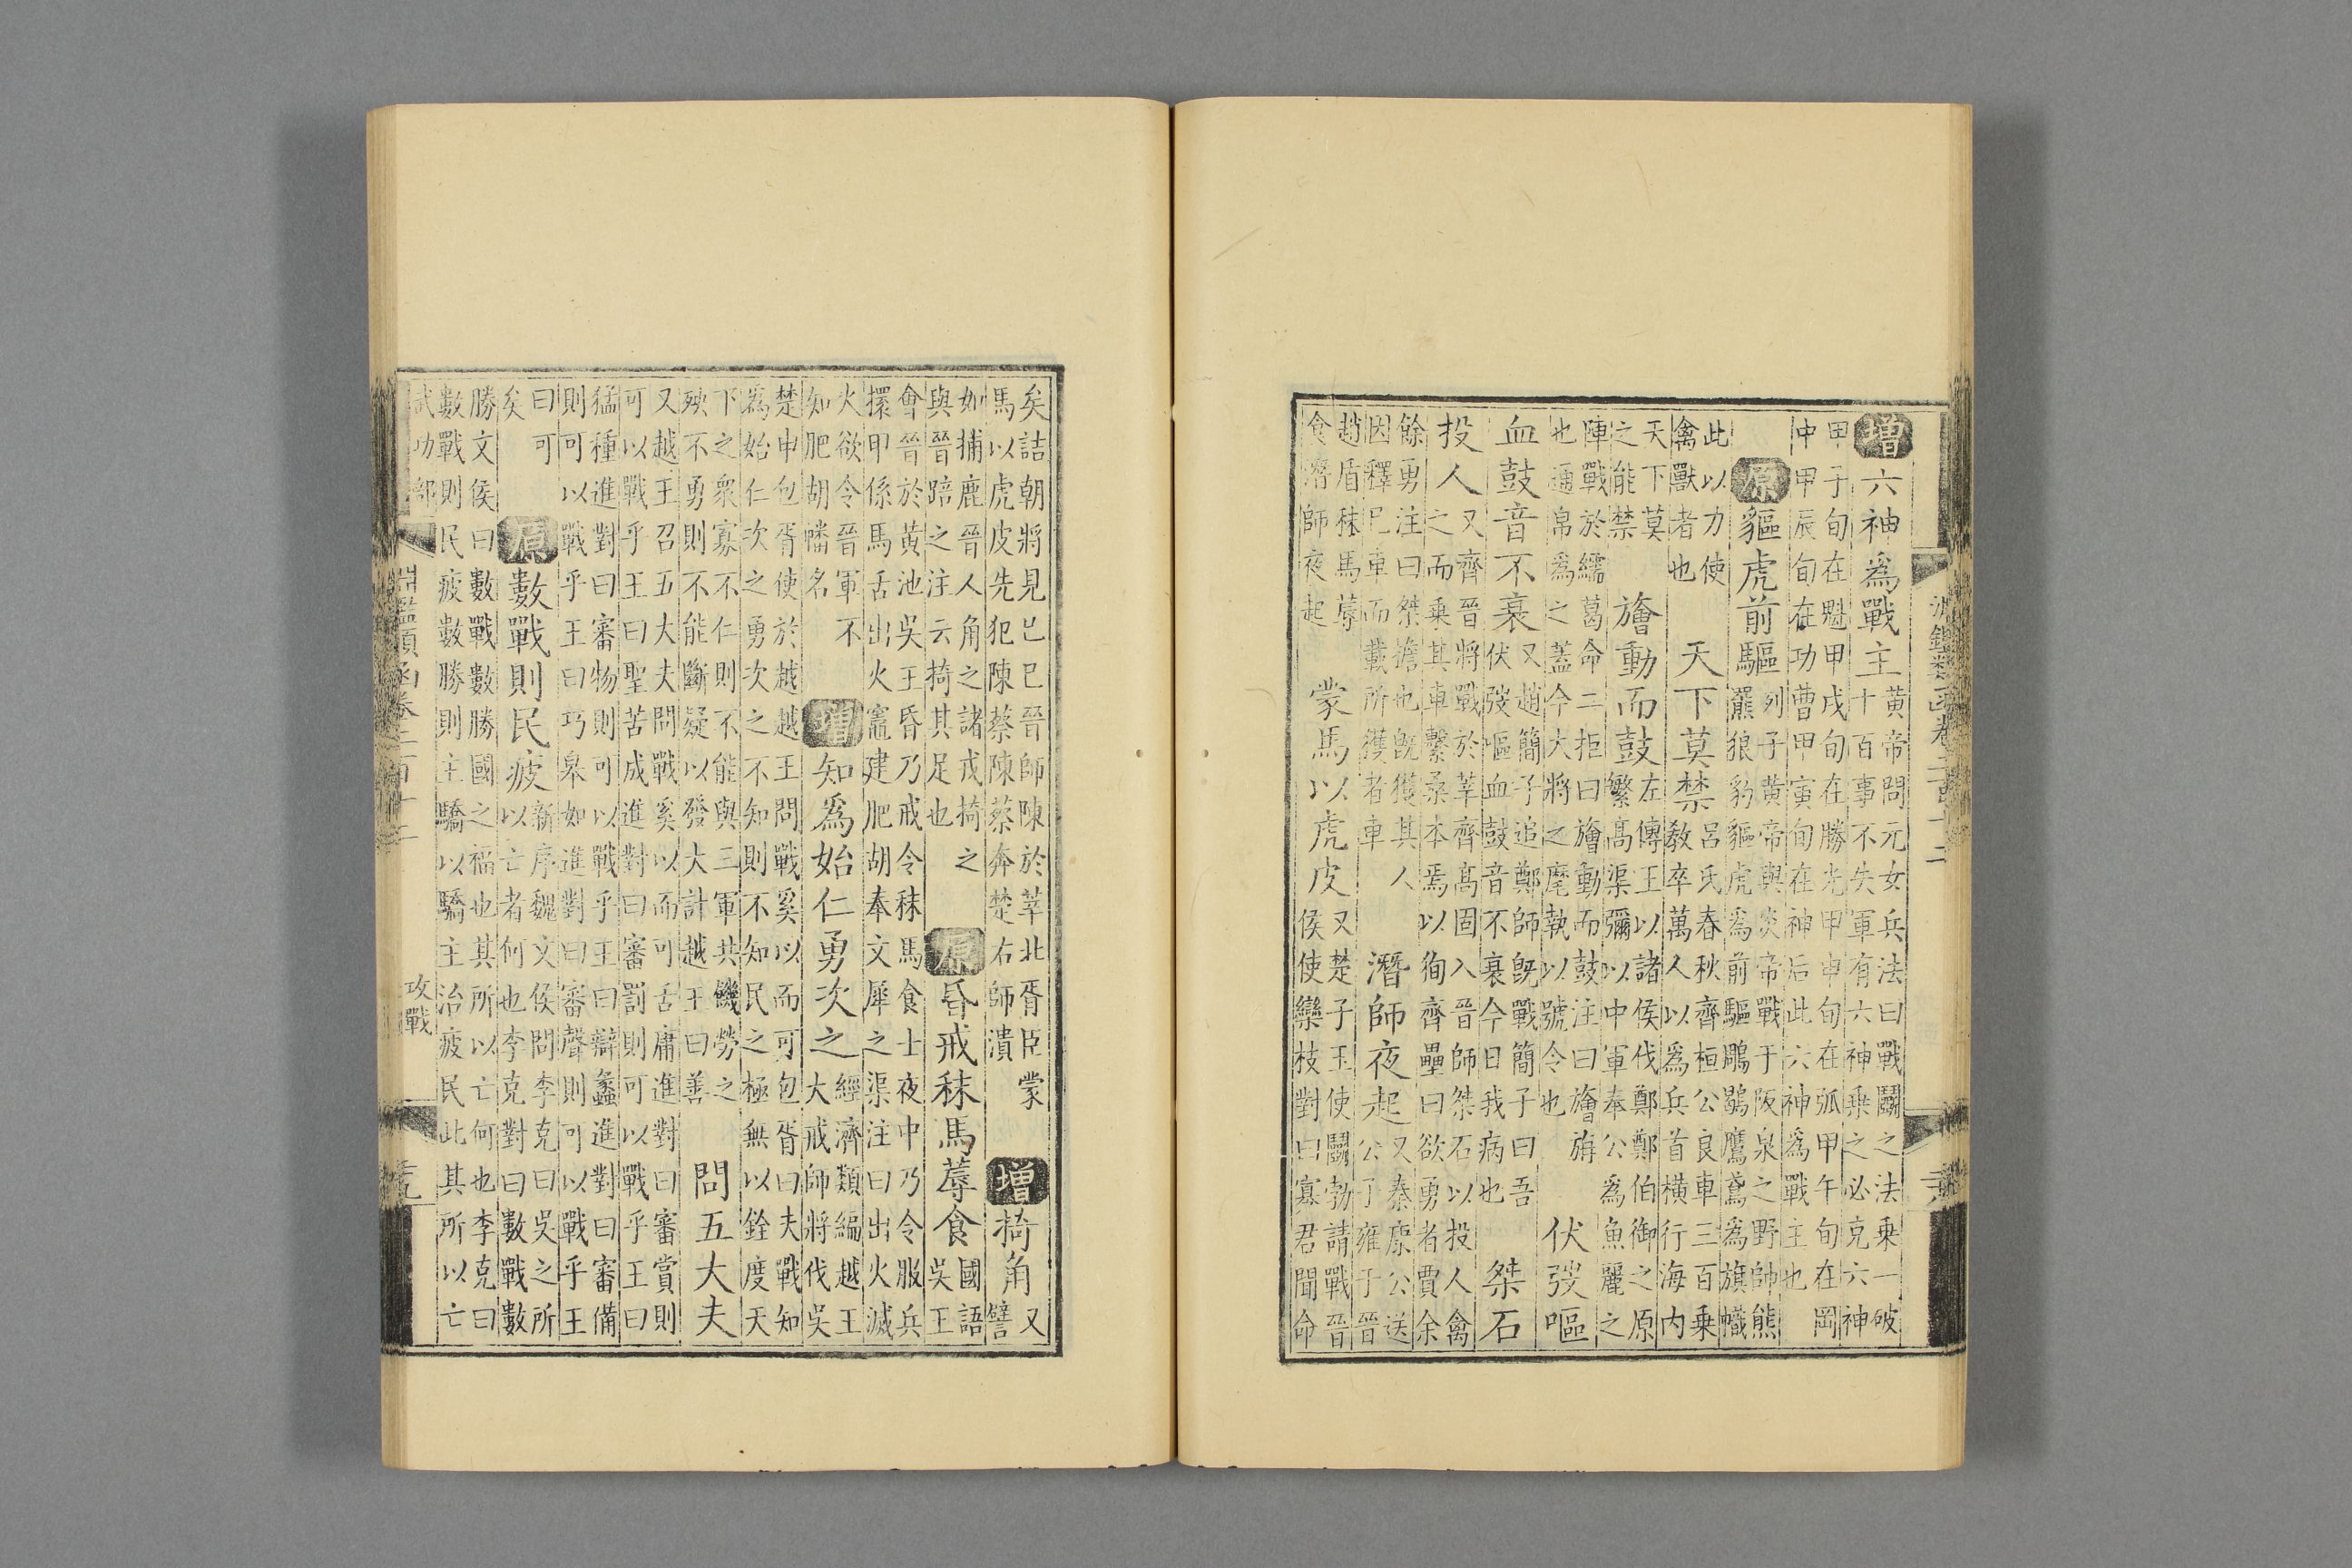 淵鑑類函卷二百十二
增六神為戰主黃帝問元女兵法曰戰鬭之法乗一破十百事不失軍有六神乗之必克六神
甲子旬在魁甲戌旬在勝光甲申旬在弧甲午旬在岡中甲辰旬在功曹甲寅旬在神后此六神為戰主也
原貙虎前驅列子黃帝與炎帝戰于阪泉之野帥熊羆狼豹貙虎為前驅鵰鶡鷹鳶為旗幟
此以力使禽獸者也 天下莫禁吕氏春秋齊桓公良車三百乗教卒萬人以為兵首横行海内
天下莫之能禁 旝動而鼓左傳王以諸侯伐鄭鄭伯御之原繁高渠彌以中軍奉公為魚麗之
陣戰於繻葛命二拒曰旝動而鼓注曰旝旃也通帛為之蓋今大將之麾執以號令也 伏弢嘔
血鼓音不衰又趙簡子追鄭師旣戰簡子曰吾伏弢嘔血鼓音不衰今日我病也 桀石
投人又齊晉將戰於莘齊高固入晉師桀石以投人禽之而乗其車繫桑本焉以徇齊壘曰欲勇者賈余
餘勇注曰桀擔也旣獲其人因釋已車而載所獲者車 潛師夜起又秦康公送公子雍于晉
趙盾秣馬蓐食潛師夜起 蒙馬以虎皮又楚子玉使鬭勃請戰晉侯使欒枝對曰寡君聞命
矣詰朝將見已巳晉師陳於莘北胥臣蒙馬以虎皮先犯陳蔡陳蔡奔楚右師潰 增掎角又譬
如捕鹿晉人角之諸戎掎之與晉踣之注云掎其足也 原昏戒秣馬蓐食國語吳王
會晉於黃池吳王昏乃戒令秣馬食士夜中乃令服兵擐甲係馬舌出火竈建肥胡奉文犀之渠注曰出火滅
火欲令晉軍不知肥胡幡名 增知為始仁勇次之經濟類編越王大戒師將伐吳
楚申包胥使於越越王問戰奚以而可包胥曰夫戰知為始仁次之勇次之不知則不知民之極無以銓度天
下之衆寡不仁則不能與三軍共饑勞之殃不勇則不能斷疑以發大計越王曰善 問五大夫
又越王召五大夫問戰奚以而可舌庸進對曰審賞則可以戰乎王曰聖苦成進對曰審罰則可以戰乎王曰
猛種進對曰審物則可以戰乎王曰辯蠡進對曰審備則可以戰乎王曰巧皋如進對曰審聲則可以戰乎王
曰可矣 原數戰則民疲新序魏文侯問李克曰吳之所以亡者何也李克對曰數戰數
勝文侯曰數戰數勝國之福也其所以亡何也李克曰數戰則民疲數勝則主驕以驕主治疲民此其所以亡
武功部 淵鑑類函卷二百十二 攻戰